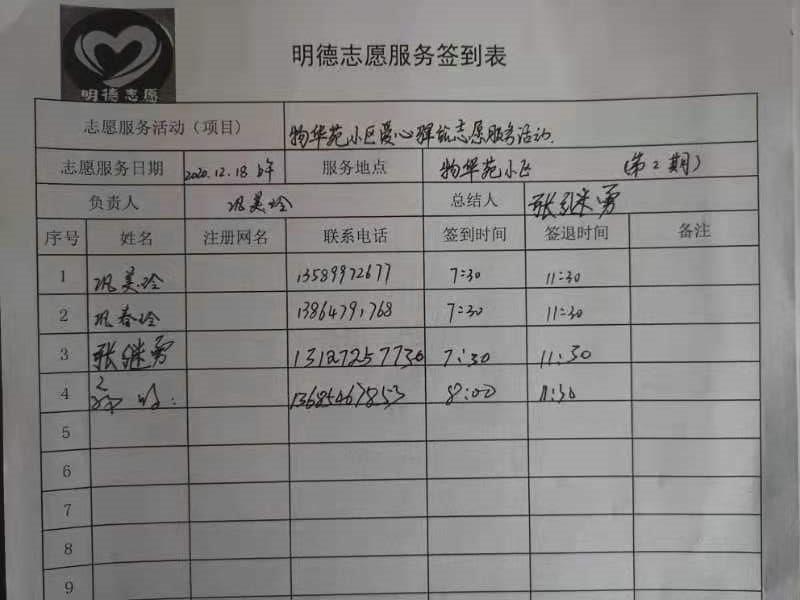 明德志愿
明德志愿服务签到表
志愿服务活动（项目） 物华苑小区爱心驿站志愿服务活动.
志愿服务日期 2020.12.18 服务地点 物华苑小区 (第2期)
负责人 巩美玲 总结人 张继勇
序号 姓名 注册网名 联系电话 签到时间 签退时间 备注
1 巩美玲 13589972677 7:30 11:30
2 巩春玲 13864791768 7:30 11:30
3 张继勇 13127257730 7:30 11:30
4 13685467853 8:00 11:30
5
6
7
8
9